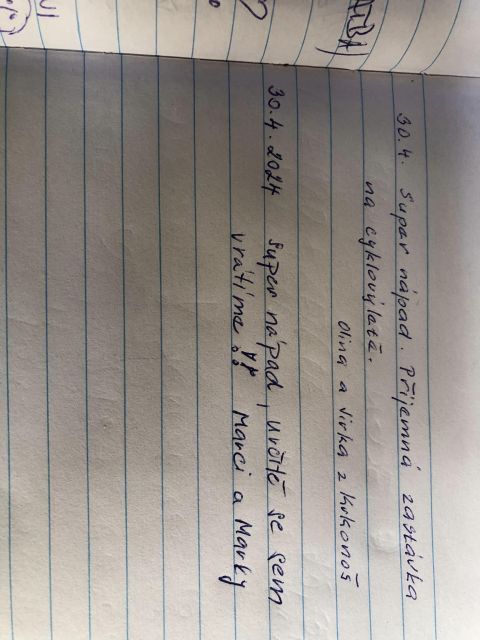 30.4. Super nápad. Příjemná zastávka
na cyklovýletě.
Olina a Jirka z Krkonoš
30.4.2024 super nápad, určitě se sem
vrátíme !! Marci a Marky